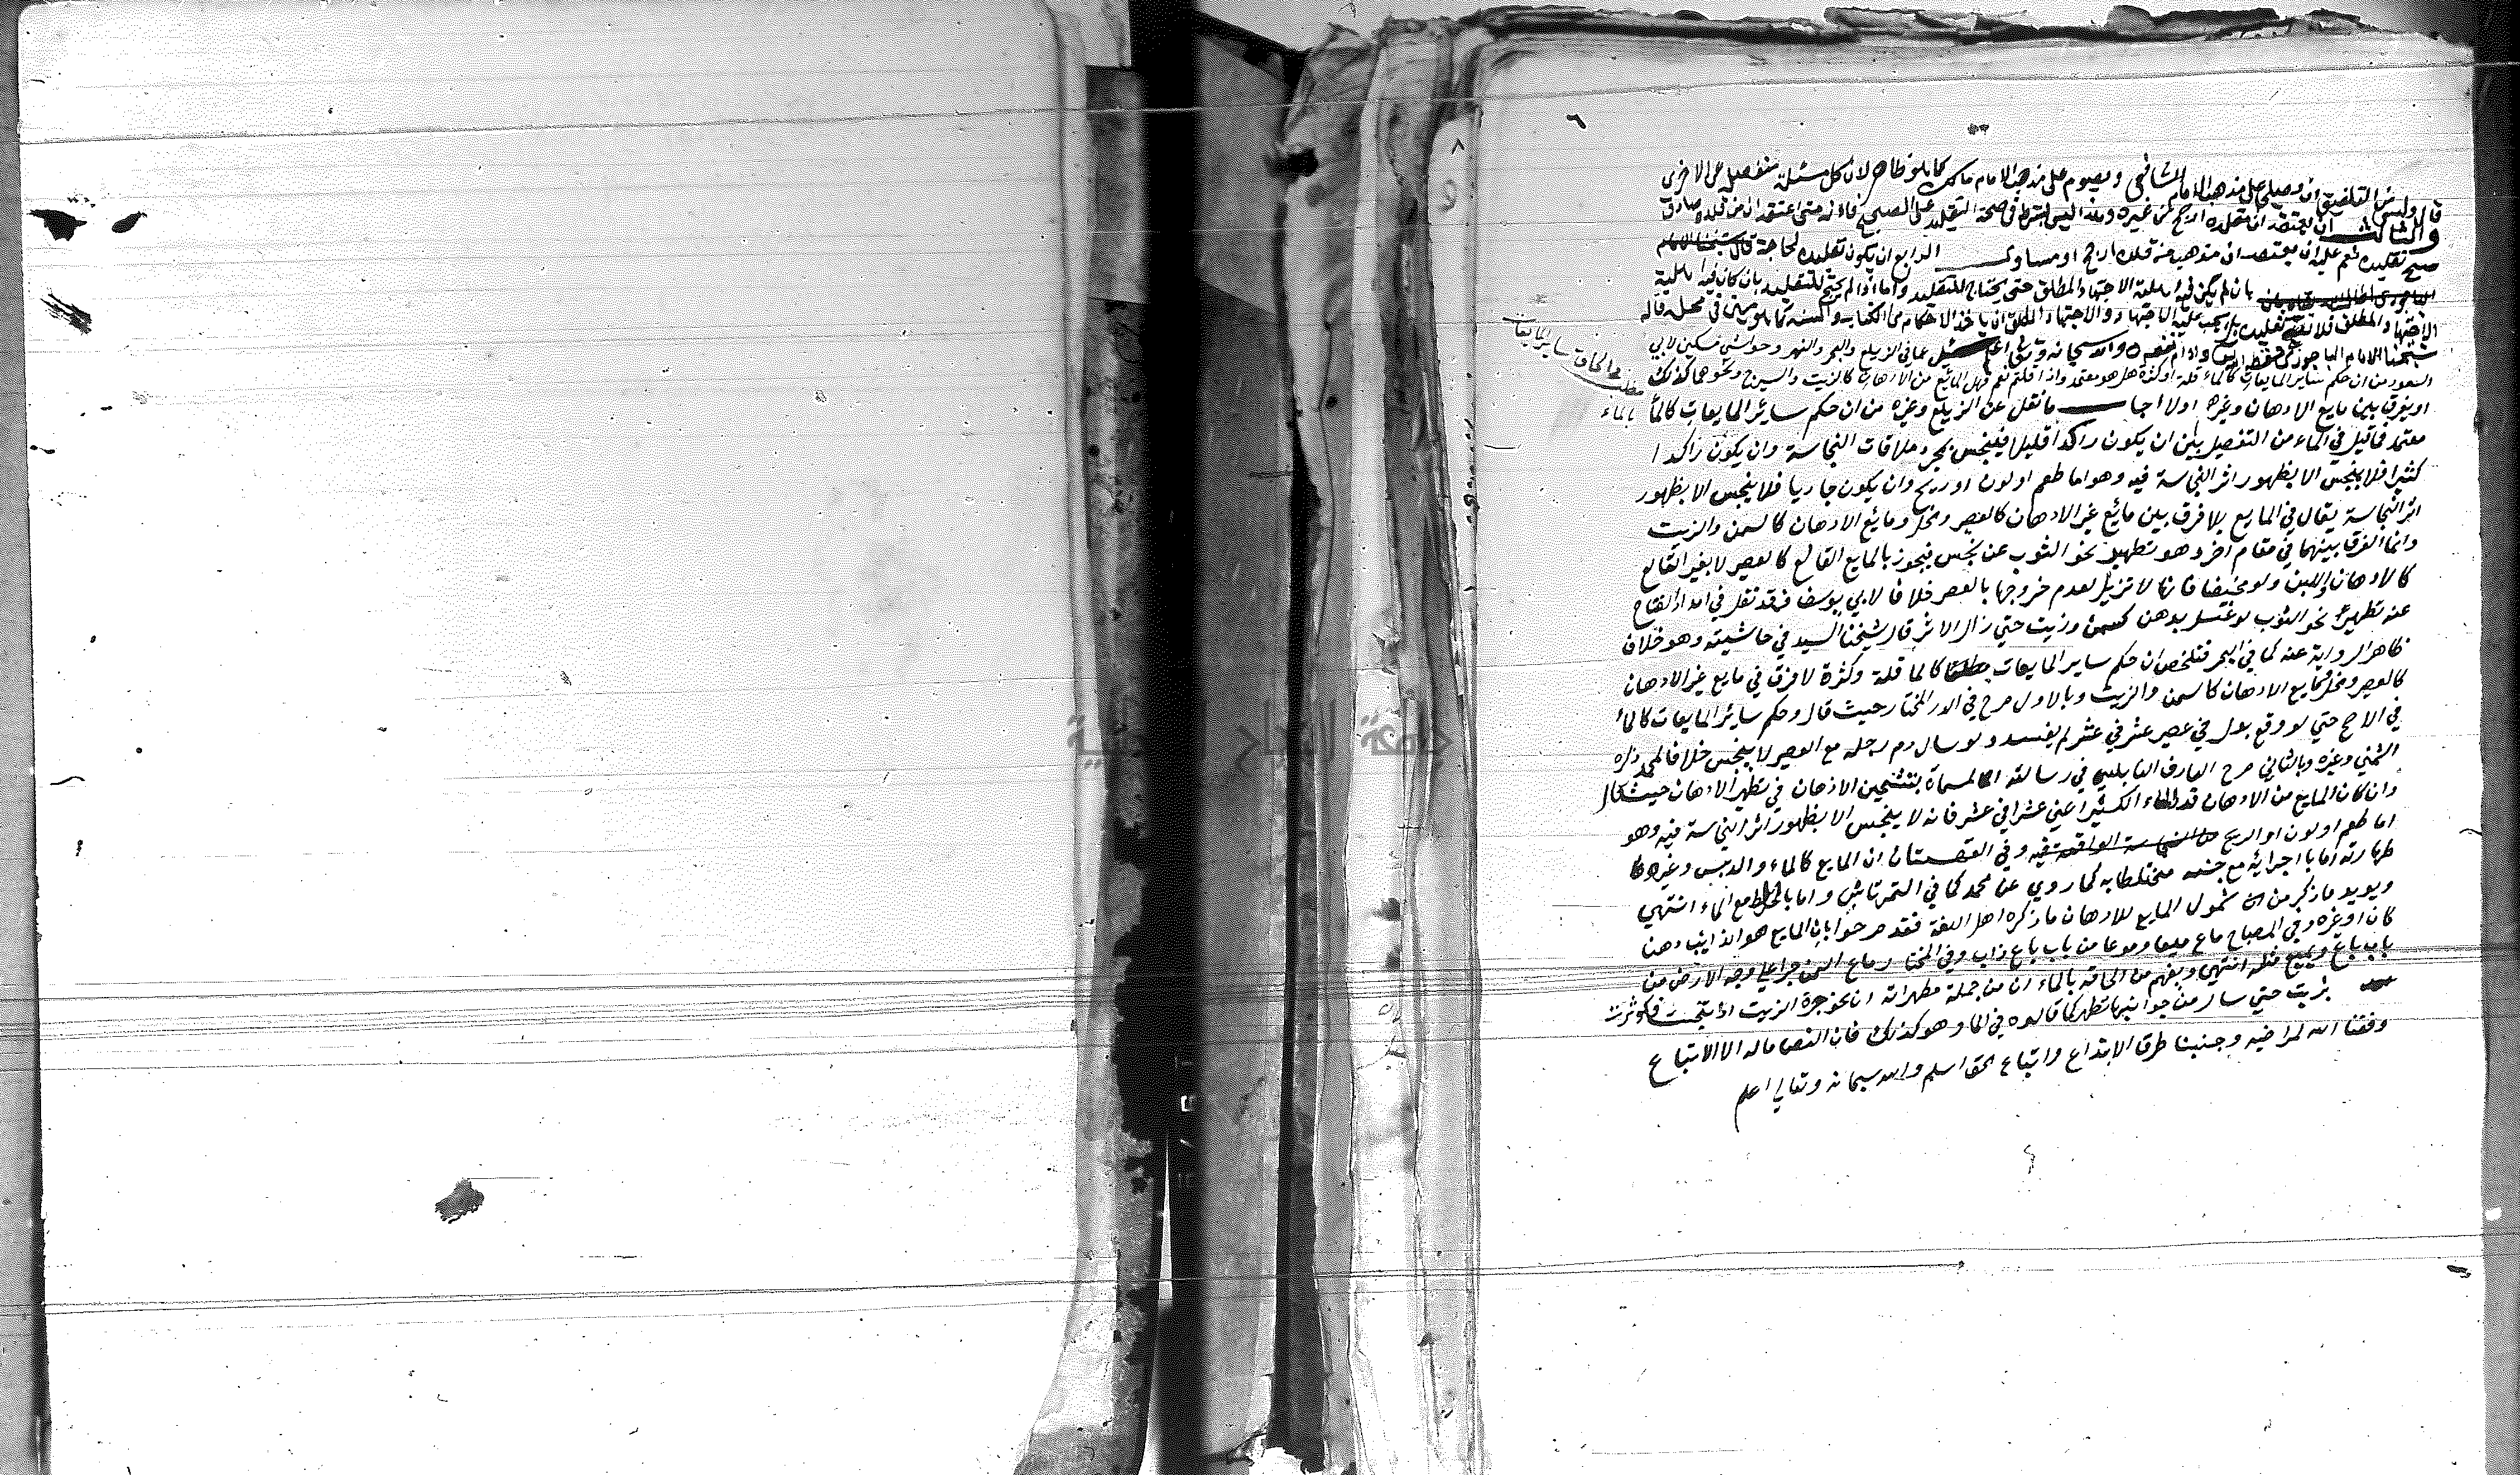 ٦
٨
قال وليس من التلفيق ان يصلي على مذهب الامام الشافعي ويصوم على مذهب الامام مالك كما هو ظاهر لان كل مسئلة منفصلة عن الاخرى
والثالث ان يعتقد ان مقلده ارجح من غيره وهذا ليس بشرط في صحة التقليد على الصحيح فانه متى اعتقد ان من قلده صادق
صح تقليده نعم عليه ان يعتقد ان مذهب من قلده ارجح او مساوى الرابع ان يكون تقليده لحاجة قال شيخنا الامام
الباجوري بان لم يكن فيه اهلية الاجتهاد المطلق حتى يحتاج للتقليد واما اذا لم يحتج للتقليد بان كان فيه اهلية
الاجتهاد المطلق فلا يصح تقليده بل يجب عليه الاجتهاد والاجتهاد المطلق ان ياخذ الاحكام من الكتاب والسنه كما هو مبين في محله قاله
شيخنا الامام الباجوري والله سبحانه وتعالى اعلم سئل عما في الزيلعي والبحر والنهر وحواشي مسكين لابي
السعود من ان حكم سائر المايعات كالماء قلة او كثرة هل هو معتمد واذا قلتم نعم فهل المائع من الادهان كالزيت والسيرج ونحوهما كذلك
او يفرق بين مايع الادهان وغيره اولا اجاب ما نقل عن الزيلعي وغيره من ان حكم سائر المايعات كالماء
معتمد فما قيل في الماء من التفصيل بين ان يكون راكدا قليلا فينجس بمجرد ملاقات النجاسة وان يكون راكدا
كثيرا فلا ينجس الا بظهور اثر النجاسة فيه وهو اما طعم او لون او ريح وان يكون جاريا فلا ينجس الا بظهور
اثر النجاسة يقال في المايع بلا فرق بين مائع غير الادهان كالعصير ونحوه ومائع الادهان كالسمن والزيت
وانما الفرق بينهما في مقام اخر وهو تطهير نحو الثوب عن نجس فيجوز بالمايع القالع كالعصير لا بغير القالع
كالادهان واللبن ولو مخيضا فانها لا تزيل لعدم خروجها بالعصر خلافا لابي يوسف فقد نقل في امداد الفتاح
عنه تطهير نحو الثوب لو غسل بدهن كسمن وزيت حتي زال الاثر قال شيخنا السيد في حاشيته وهو خلاف
ظاهر الرواية عنه كما في البحر فتلخص ان حكم ساير المايعات مطلقا كالما قلة وكثرة لا فرق في مايع غير الادهان
كالعصير ونحوه ومايع الادهان كالسمن والزيت وبالاول صرح في الدر المختار حيث قال وحكم سائر المايعات كالماء
في الاصح حتي لو وقع بول في عصير عشر في عشر لم يفسد ولو سال دم رجله مع العصير لا ينجس خلافا لمحمد ذكره
الشمني وغيره وبالثاني صرح العارف النابلسي في رسالته المسماة بتشحيذ الاذهان في تطهير الادهان حيث قال
وان كان المايع من الادهان قدر الماء الكثير اعني عشرا في عشر فانه لا ينجس الا بظهور اثر النجاسة فيه وهو
اما طعم او لون او الريح من النجاسة الواقعة فيه وفي القهستاني ان المايع كالماء والدبس وغيرهما
طهارته اما باجرائه مع جنسه مختلطا به كما روي عن محمد كما في التمرتاشي واما بالخلط مع الماء انتهي
ويويد ما ذكر من شمول المايع للادهان ما ذكره اهل اللغة فقد صرحوا بان المايع هو الذايب دهنا
كان او غيره وفي المصباح ماع ميعا وموعا من باب باع ذاب وفي المختار ماع السمن جرا علي وجه الارض من
باب باع وتميع مثله انتهي ويفهم من الحاقه بالماء ان من جملة مطهراته ان نحو جرة الزيت اذا تنجست فكوثرت
بزيت حتي سال من جوانبها تطهر كما قالوه في الما وهو كذلك فان النص ماله الا الاتباع
وفقنا الله لمراضيه وجنبنا طرق الابتداع واتباع الحق اسلم والله سبحانه وتعالي اعلم
مطلب في الحاق ساير المايعات
بالماء
جامعة النجاح الوطنية